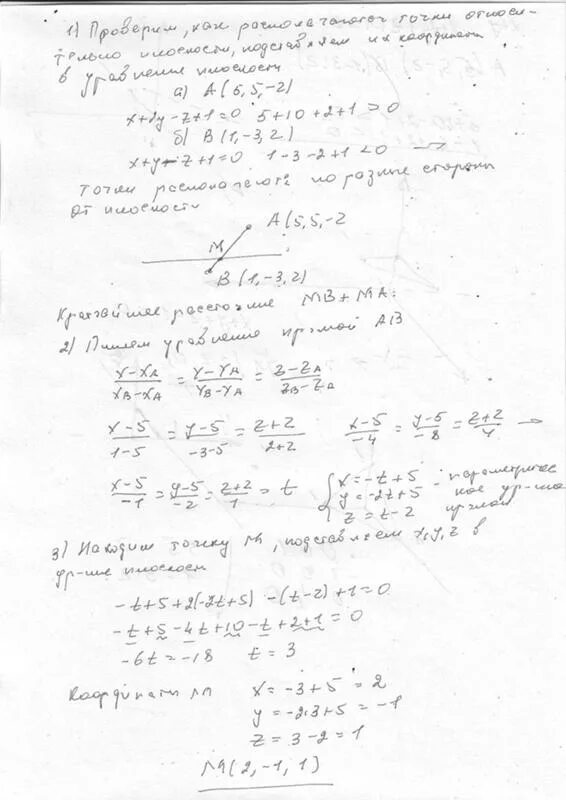 1) Проверим, как располагаются точки относи-
тельно плоскости, подставляем их координаты
в уравнение плоскости
а) A(5,5,-2)
x+2y-z+1=0 5+10+2+1>0
б) B(1,-3,2)
x+y-z+1=0 1-3-2+1<0 →
точки располагаются по разные стороны
от плоскости
A(5,5,-2
M
B(1,-3,2)
Кратчайшее расстояние MB+MA.
2) Пишем уравнение прямой AB
x-xA/xB-xA = y-yA/yB-yA = z-zA/zB-zA
x-5/1-5 = y-5/-3-5 = z+2/2+2 x-5/-4 = y-5/-8 = z+2/4 →
x-5/-1 = y-5/-2 = z+2/1 = t { x=-t+5 y=-2t+5 z=t-2 - параметричес-кое ур-ние прямой
3) Находим точку M, подставляем x,y,z в
ур-ние плоскости
-t+5+2(-2t+5)-(t-2)+1=0
-t+5-4t+10-t+2+1=0
-6t=-18 t=3
Координаты M x=-3+5=2
y=-2·3+5=-1
z=3-2=1
M(2,-1,1)